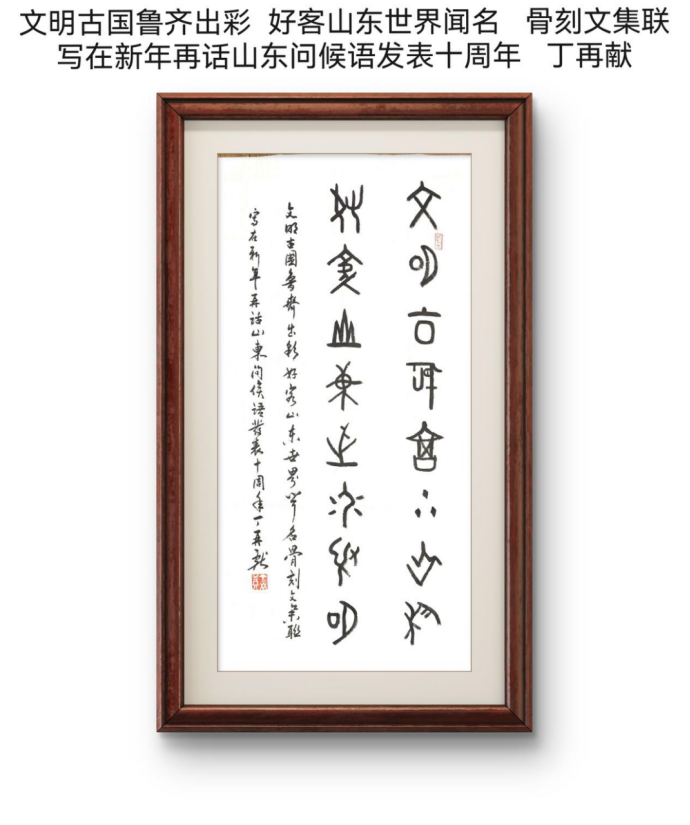 文明古国鲁齐出彩 好客山东世界闻名 骨刻文集联
写在新年再话山东问候语发表十周年 丁再献
文明古国鲁齐出彩
好客山东世界闻名
文明古國魯齊出彩好客山东世界闻名骨刻文集联
写在新年再话山東问候语發表十周年丁再献